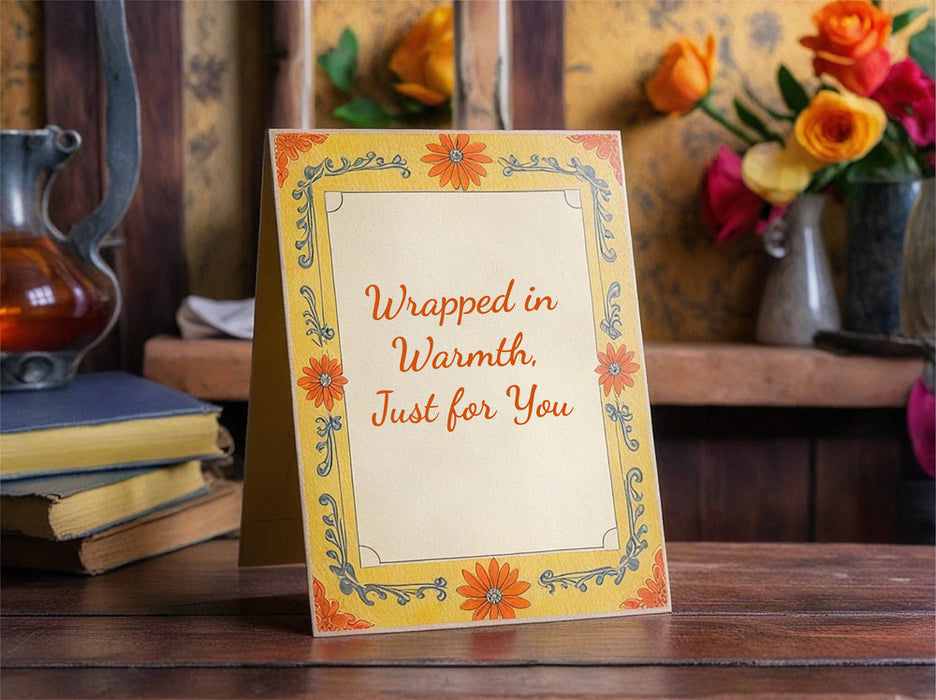 Wrapped in
Warmth,
Just for You